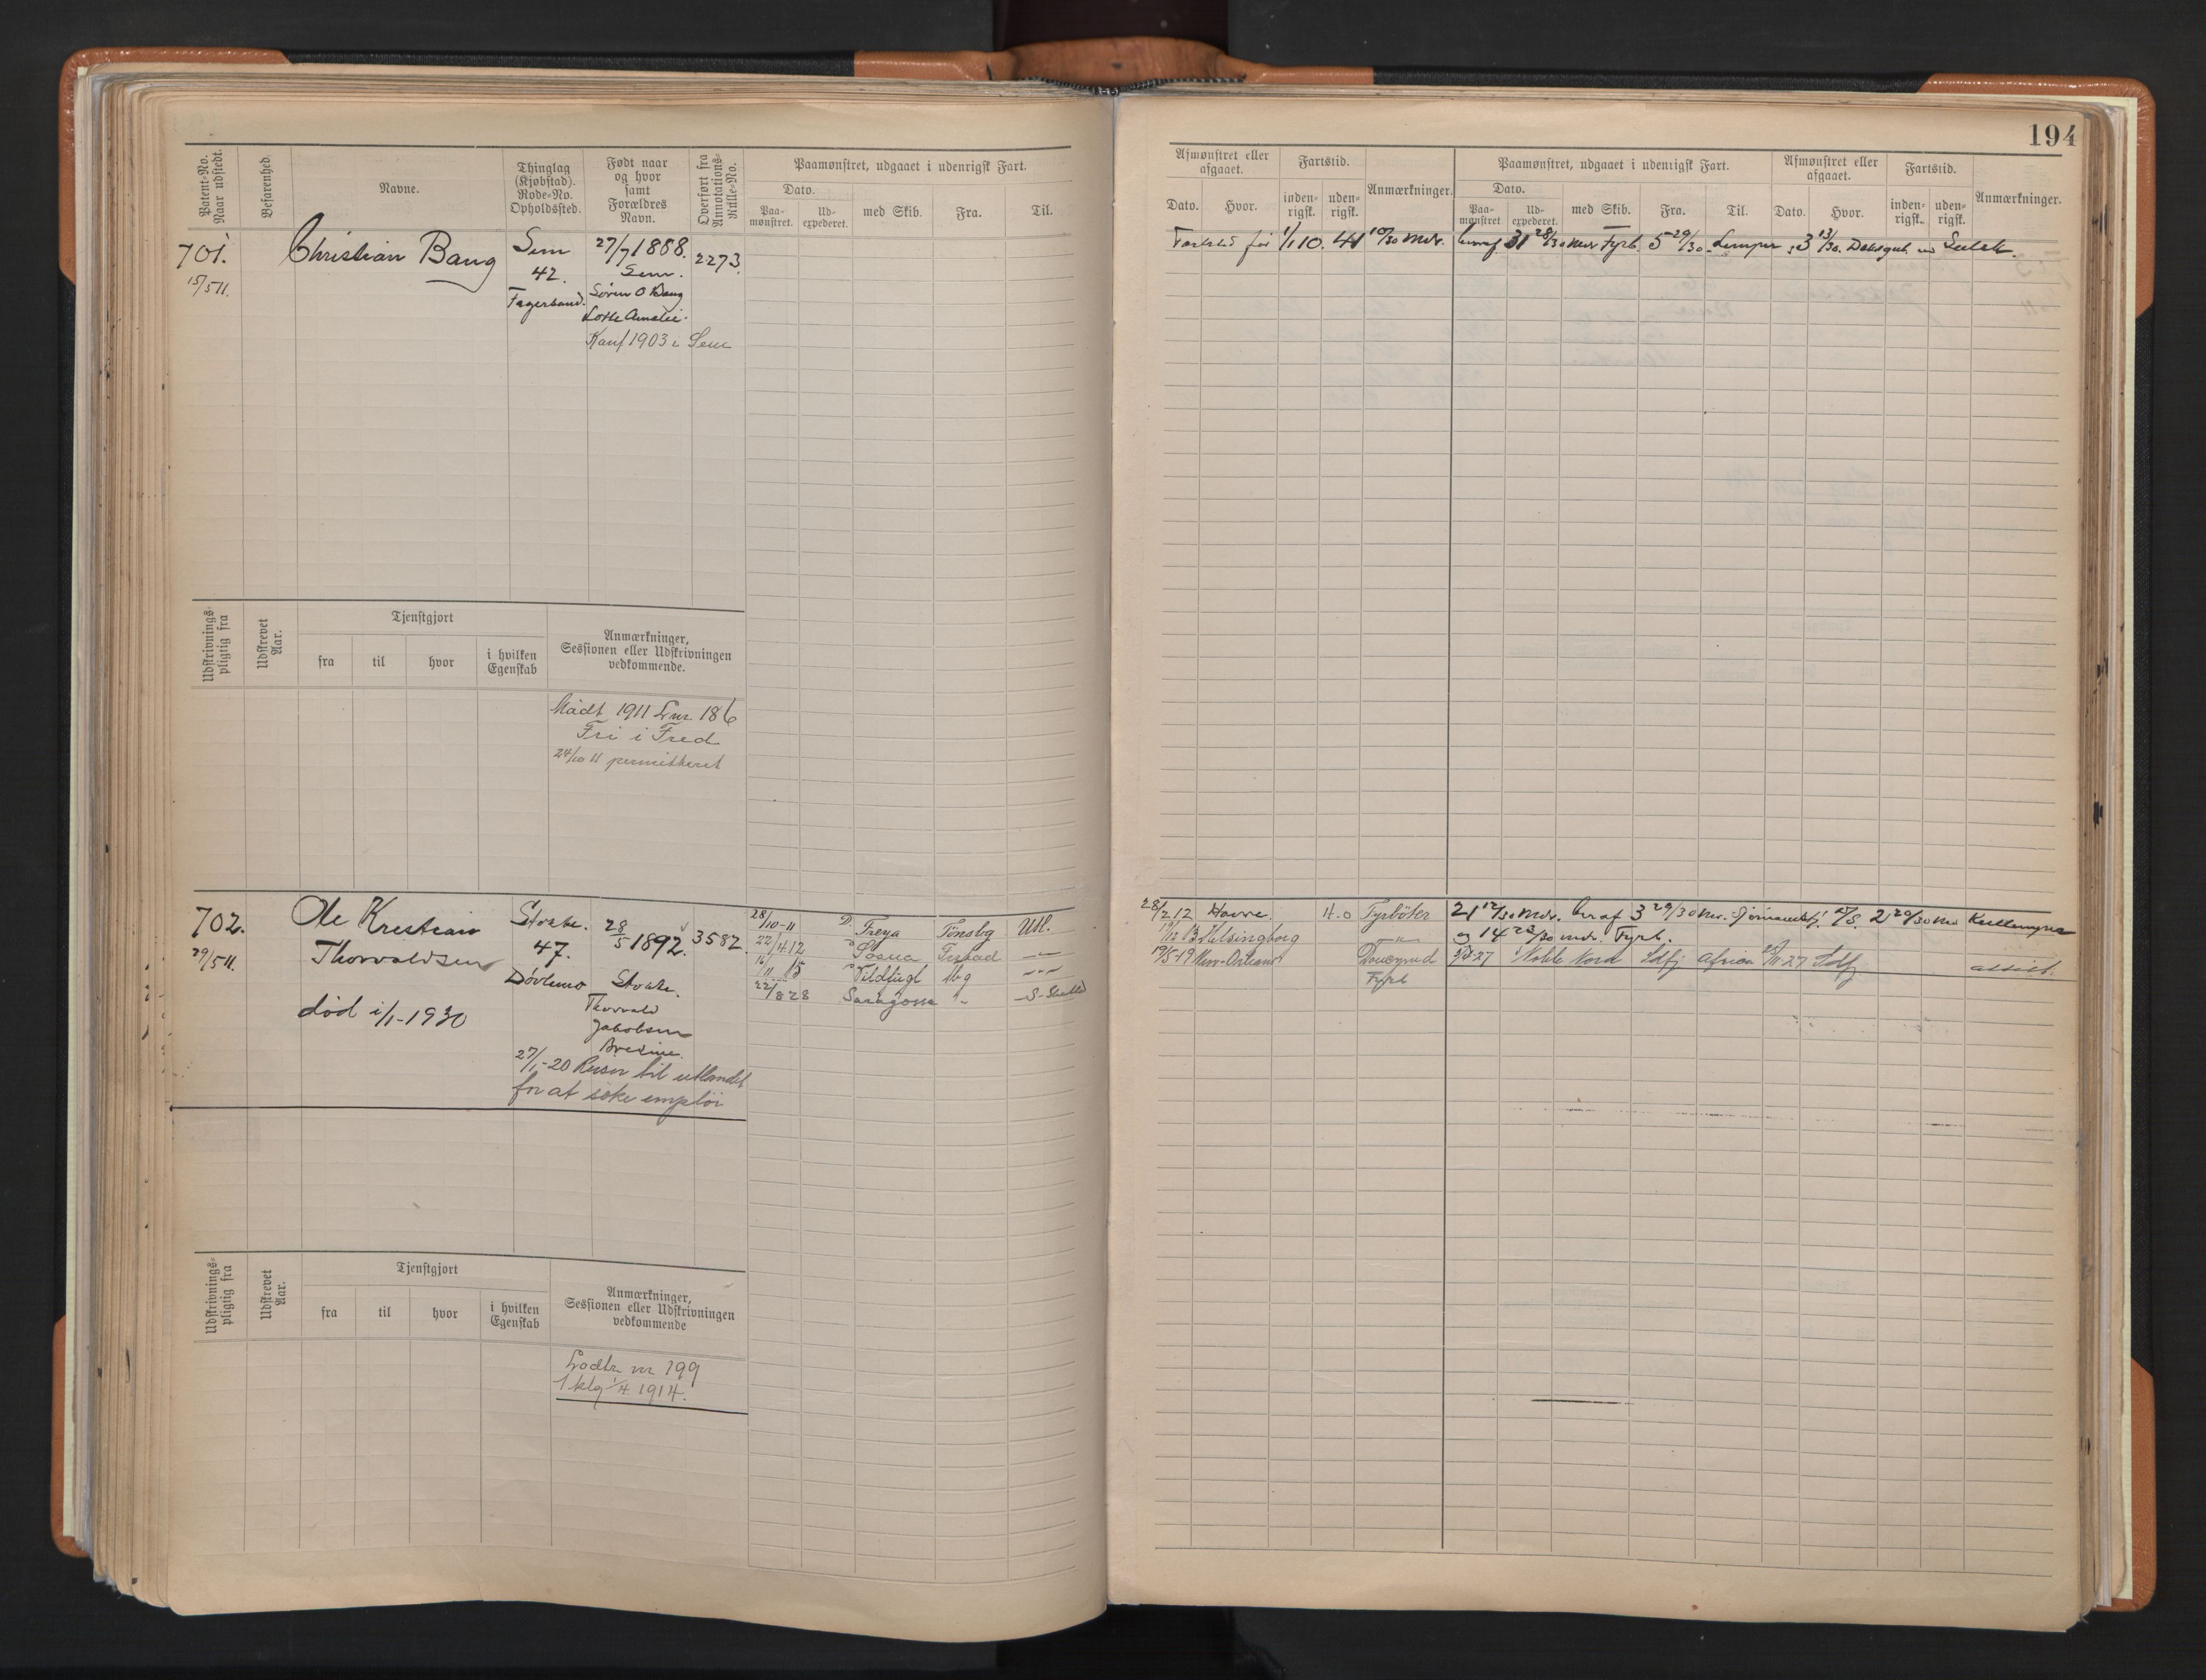 194
Patent-No. Naar udstedt.
Befarenhed.
Navne.
Thinglag (Kjøbstad). Rode-No. Opholdssted.
Født naar og hvor samt Forældres Navn.
Overført fra Annotations-Rulle-No.
Paamønstret, udgaaet i udenrigsk Fart.
Dato.
Paa-mønstret.
Ud-expederet.
med Skib.
Fra.
Til.
Afmønstret eller afgaaet.
Dato.
Hvor.
Fartstid.
inden-rigsk.
uden-rigsk.
Anmærkninger.
Paamønstret, udgaaet i udenrigsk Fart.
Dato.
Paa-mønstret
Ud-expederet.
med Skib.
Fra.
Til.
Afmønstret eller afgaaet.
Dato.
Hvor.
Fartstid.
inden-rigsk.
uden-rigsk.
Anmærkninger.
701.
15/5 11.
Christian Bang
Sem
42.
27/7 1888.
Sem.
Søren O Bang
Lotte Amalie.
Konf 1903 i Sem
2273.
Fartstid før 1/1 10. 41 10/30 Mdr. heraf 31 28/30 Mdr Fyrb. 5 29/30 Lemper 3 13/30
Udskrivnings-pligtig fra
Udskrevet Aar.
Tjenstgjort
fra
til
hvor
i hvilken Egenskab
Anmærkninger, Sessionen eller Udskrivningen vedkommende.
Mødt 1911 Lnr. 186
Fri i Fred
24/10 11 permitteret
702.
29/5 11.
Ole Kristian
Thorvaldsen
død i 1/1-1930
Stokke.
47.
28/5 1892
Stokke.
Thorvald
Jakobsen
27/1-20 Reiser til utlandet
for at søke
3582.
28/10-11 D. Freya Tønsbg Utl.
22/4 12
16/11 15 Vildfugl Tbg
22/8 28 Saragossa
28/2 12 Havre. 4.0 Fyrbøter
Helsingborg
19/5-19 New-Orleans Donkymnd
Fyrb
21 12/30 Mdr. heraf 3 29/30 Mdr.
og 14 23/30 mdr. Fyrb.
Noble Nord Sdfj Africa Sdfj
Udskrivnings-pligtig fra
Udskrevet Aar.
Tjenstgjort
fra
til
hvor
i hvilken Egenskab
Anmærkninger, Sessionen eller Udskrivningen vedkommende
Lodtr nr 199
1 klg 1/4 1914.